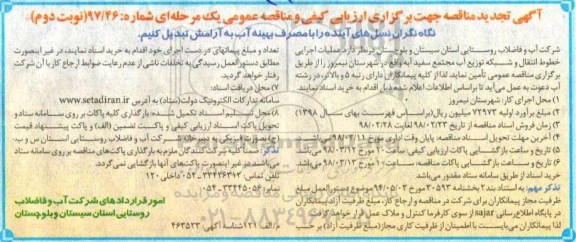 آگهی تجدید مناقصه جهت برگزاری ارزیابی کیفی و مناقصه عمومی یک مرحله‌ای شماره: ۹۷/۴۶ (نوبت دوم)
نگاه نگران نسل‌های آینده را با مصرف بهینه آب به آرامش تبدیل کنیم.
شرکت آب و فاضلاب روستایی استان سیستان و بلوچستان در نظر دارد عملیات اجرایی
خطوط انتقال و شبکه توزیع آب مجتمع سفیدآبه واقع در شهرستان نیمروز را از طریق
برگزاری مناقصه عمومی تأمین نماید. لذا از کلیه پیمانکاران دارای رتبه ۵ و بالاتر، در رشته
آب دعوت به عمل می‌آید تا براساس اطلاعات اعلام شده ذیل اقدام به خرید اسناد نمایند.
۱) محل اجرای کار: شهرستان نیمروز
۲) مبلغ برآورد اولیه ۷۲۹۷۳ میلیون ریال (براساس فهرست بهای سال ۱۳۹۸)
۳) زمان فروش اسناد مناقصه از تاریخ ۹۸/۰۲/۲۳ لغایت ۹۸/۰۲/۲۸
۴) آخرین مهلت تحویل اسناد مناقصه: پایان وقت اداری مورخ ۹۸/۰۳/۱۱ می‌باشد
۵) تاریخ و ساعت بازگشایی پاکات ارزیابی کیفی ساعت ۱۰ مورخ ۹۸/۰۳/۱۲ می‌باشد
۶) تاریخ و ساعت بازگشایی پاکات مناقصه: ساعت ۱۰ مورخ ۹۸/۰۳/۱۳ می‌باشد
خرید اسناد از طریق سامانه ستاد مقدور می‌باشد.
تذکر مهم: به استناد بند ۲ بخشنامه ۳۰۵۹۳ مورخ ۹۴/۰۵/۰۳ موضوع دستورالعمل مبلغ
ظرفیت مجاز پیمانکاران برای شرکت در مناقصه و ارجاع کار، مبلغ آزاد پیمانکاران
در پایگاه اطلاع‌رسانی sajar از سوی کارفرما کنترل و ملاک عمل قرار خواهد گرفت
لذا پیمانکاران می‌بایست با اطمینان از ظرفیت کاری مجاز (مبلغ ظرفیت آزاد) بر حسب
تعداد و مبلغ پیمانهای در دست اجرای خود اقدام به خرید اسناد نمایند، در غیر اینصورت
مطابق دستورالعمل رسیدگی به تخلفات ناشی از عدم رعایت ضوابط ارجاع کار با آن شرکت
رفتار خواهد گردید.
۷) محل دریافت اسناد:
سامانه تدارکات الکترونیک دولت (ستاد) به آدرس www.setadiran.ir
۸) محل تسلیم اسناد تکمیل شده: بارگذاری کلیه پاکات بر روی سامانه ستاد و
تحویل پاکت اسناد ارزیابی کیفی و پاکت تضمین (الف) و پاکت پیشنهاد قیمت
(ج) بصورت فیزیکی به دبیرخانه شرکت آب و فاضلاب روستایی استان س و ب.
تذکر: ضمناً کلیه شرکت کنندگان ملزم به بارگذاری پاکت‌های مناقصه بر روی سامانه ستاد
می‌باشند در غیر اینصورت پاکت‌های آنها بازگشایی نمی‌گردد.
تلفن تماس: ۳۳۴۲۶۳۴۲-۰۵۴ داخلی ۱۲۰
نمابر: ۳۳۴۴۵۰۵۶-۰۵۴
امور قراردادهای شرکت آب و فاضلاب
روستایی استان سیستان و بلوچستان
م الف/۱۲۱ شناسه آگهی ۴۶۳۵۳۳
۰۲۱-۸۸۳۴۹۶